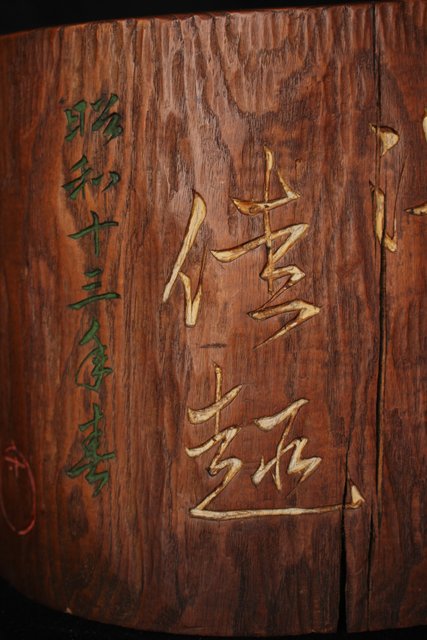 佳趣
昭和十三年春